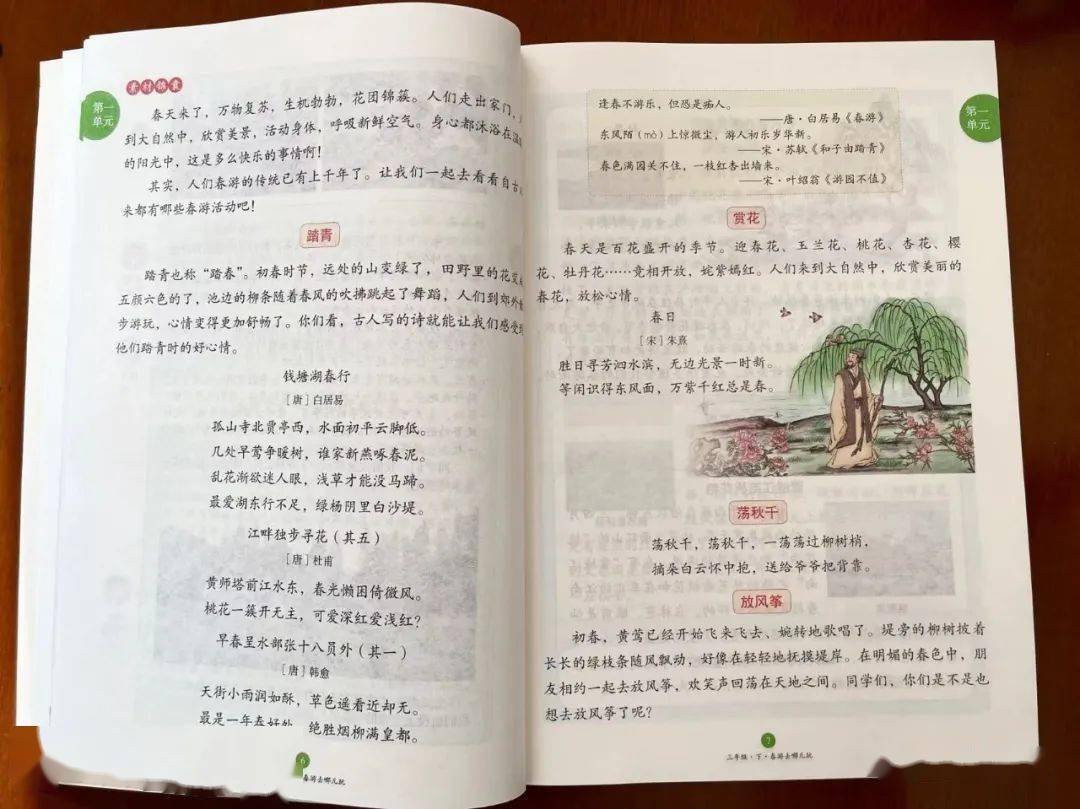 素材锦囊
第一
单元
春天来了，万物复苏，生机勃勃，花团锦簇。人们走出家门，
到大自然中，欣赏美景，活动身体，呼吸新鲜空气。身心都沐浴在温
的阳光中，这是多么快乐的事情啊！
其实，人们春游的传统已有上千年了。让我们一起去看看自古
来都有哪些春游活动吧！
踏青
踏青也称“踏春”。初春时节，远处的山变绿了，田野里的花
五颜六色的了，池边的柳条随着春风的吹拂跳起了舞蹈，人们到郊外
步游玩，心情变得更加舒畅了。你们看，古人写的诗就能让我们感受
他们踏青时的好心情。
钱塘湖春行
［唐］白居易
孤山寺北贾亭西，水面初平云脚低。
几处早莺争暖树，谁家新燕啄春泥。
乱花渐欲迷人眼，浅草才能没马蹄。
最爱湖东行不足，绿杨阴里白沙堤。
江畔独步寻花（其五）
［唐］杜甫
黄师塔前江水东，春光懒困倚微风。
桃花一簇开无主，可爱深红爱浅红？
早春呈水部张十八员外（其一）
［唐］韩愈
天街小雨润如酥，草色遥看近却无。
最是一年春好处，绝胜烟柳满皇都。
6
春游去哪儿玩
逢春不游乐，但恐是痴人。
——唐·白居易《春游》
东风陌（mò）上惊微尘，游人初乐岁华新。
——宋·苏轼《和子由踏青》
春色满园关不住，一枝红杏出墙来。
——宋·叶绍翁《游园不值》
第一
单元
赏花
春天是百花盛开的季节。迎春花、玉兰花、桃花、杏花、樱
花、牡丹花……竞相开放，姹紫嫣红。人们来到大自然中，欣赏美丽的
春花，放松心情。
春日
［宋］朱熹
胜日寻芳泗水滨，无边光景一时新。
等闲识得东风面，万紫千红总是春。
荡秋千
荡秋千，荡秋千，一荡荡过柳树梢，
摘朵白云怀中抱，送给爷爷把背靠。
放风筝
初春，黄莺已经开始飞来飞去、婉转地歌唱了。堤旁的柳树披着
长长的绿枝条随风飘动，好像在轻轻地抚摸堤岸。在明媚的春色中，朋
友相约一起去放风筝，欢笑声回荡在天地之间。同学们，你们是不是也
想去放风筝了呢？
7
三年级·下·春游去哪儿玩